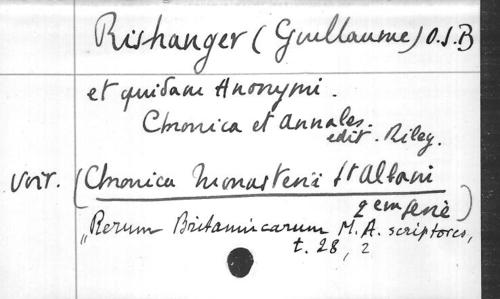 Rishanger (Guillaume) O.S.B
et quidam Anonymi.
Chronica et Annales.
edit. Riley.
Voir. (Chronica Monasterii St Albani
2em serie)
„Rerum Britannicarum M.A. scriptores,
t. 28, 2